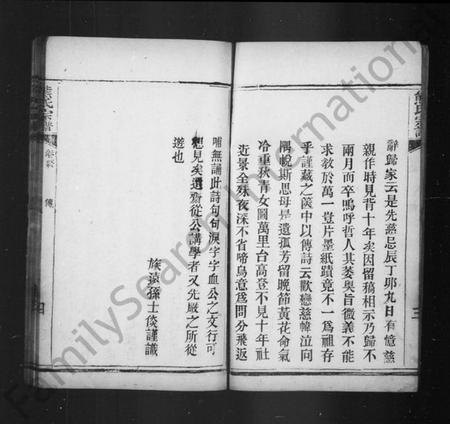 辭歸家云是先慈忌辰丁卯九日有憶慈
親作時見背十年矣因留稿相示乃歸不
兩月而卒嗚呼哲人其萎奧旨微義不能
求教於萬一豈片墨紙蹟竟不一為祖存
乎謹藏之篋中以傳詩云歡戀慈幃泣向
隅蛻斯思母是遺孤芳留晚節黃花命氣
冷重秋青女圖萬里台高登不見十年社
近景全殊夜深不省啼烏意為問分飛返
哺無誦此詩句句淚字字血公之文行可
見矣遺齋從公講學者又先嚴之所從
遊也
族遠孫士俊謹識
熊氏宗譜
FamilySearch International